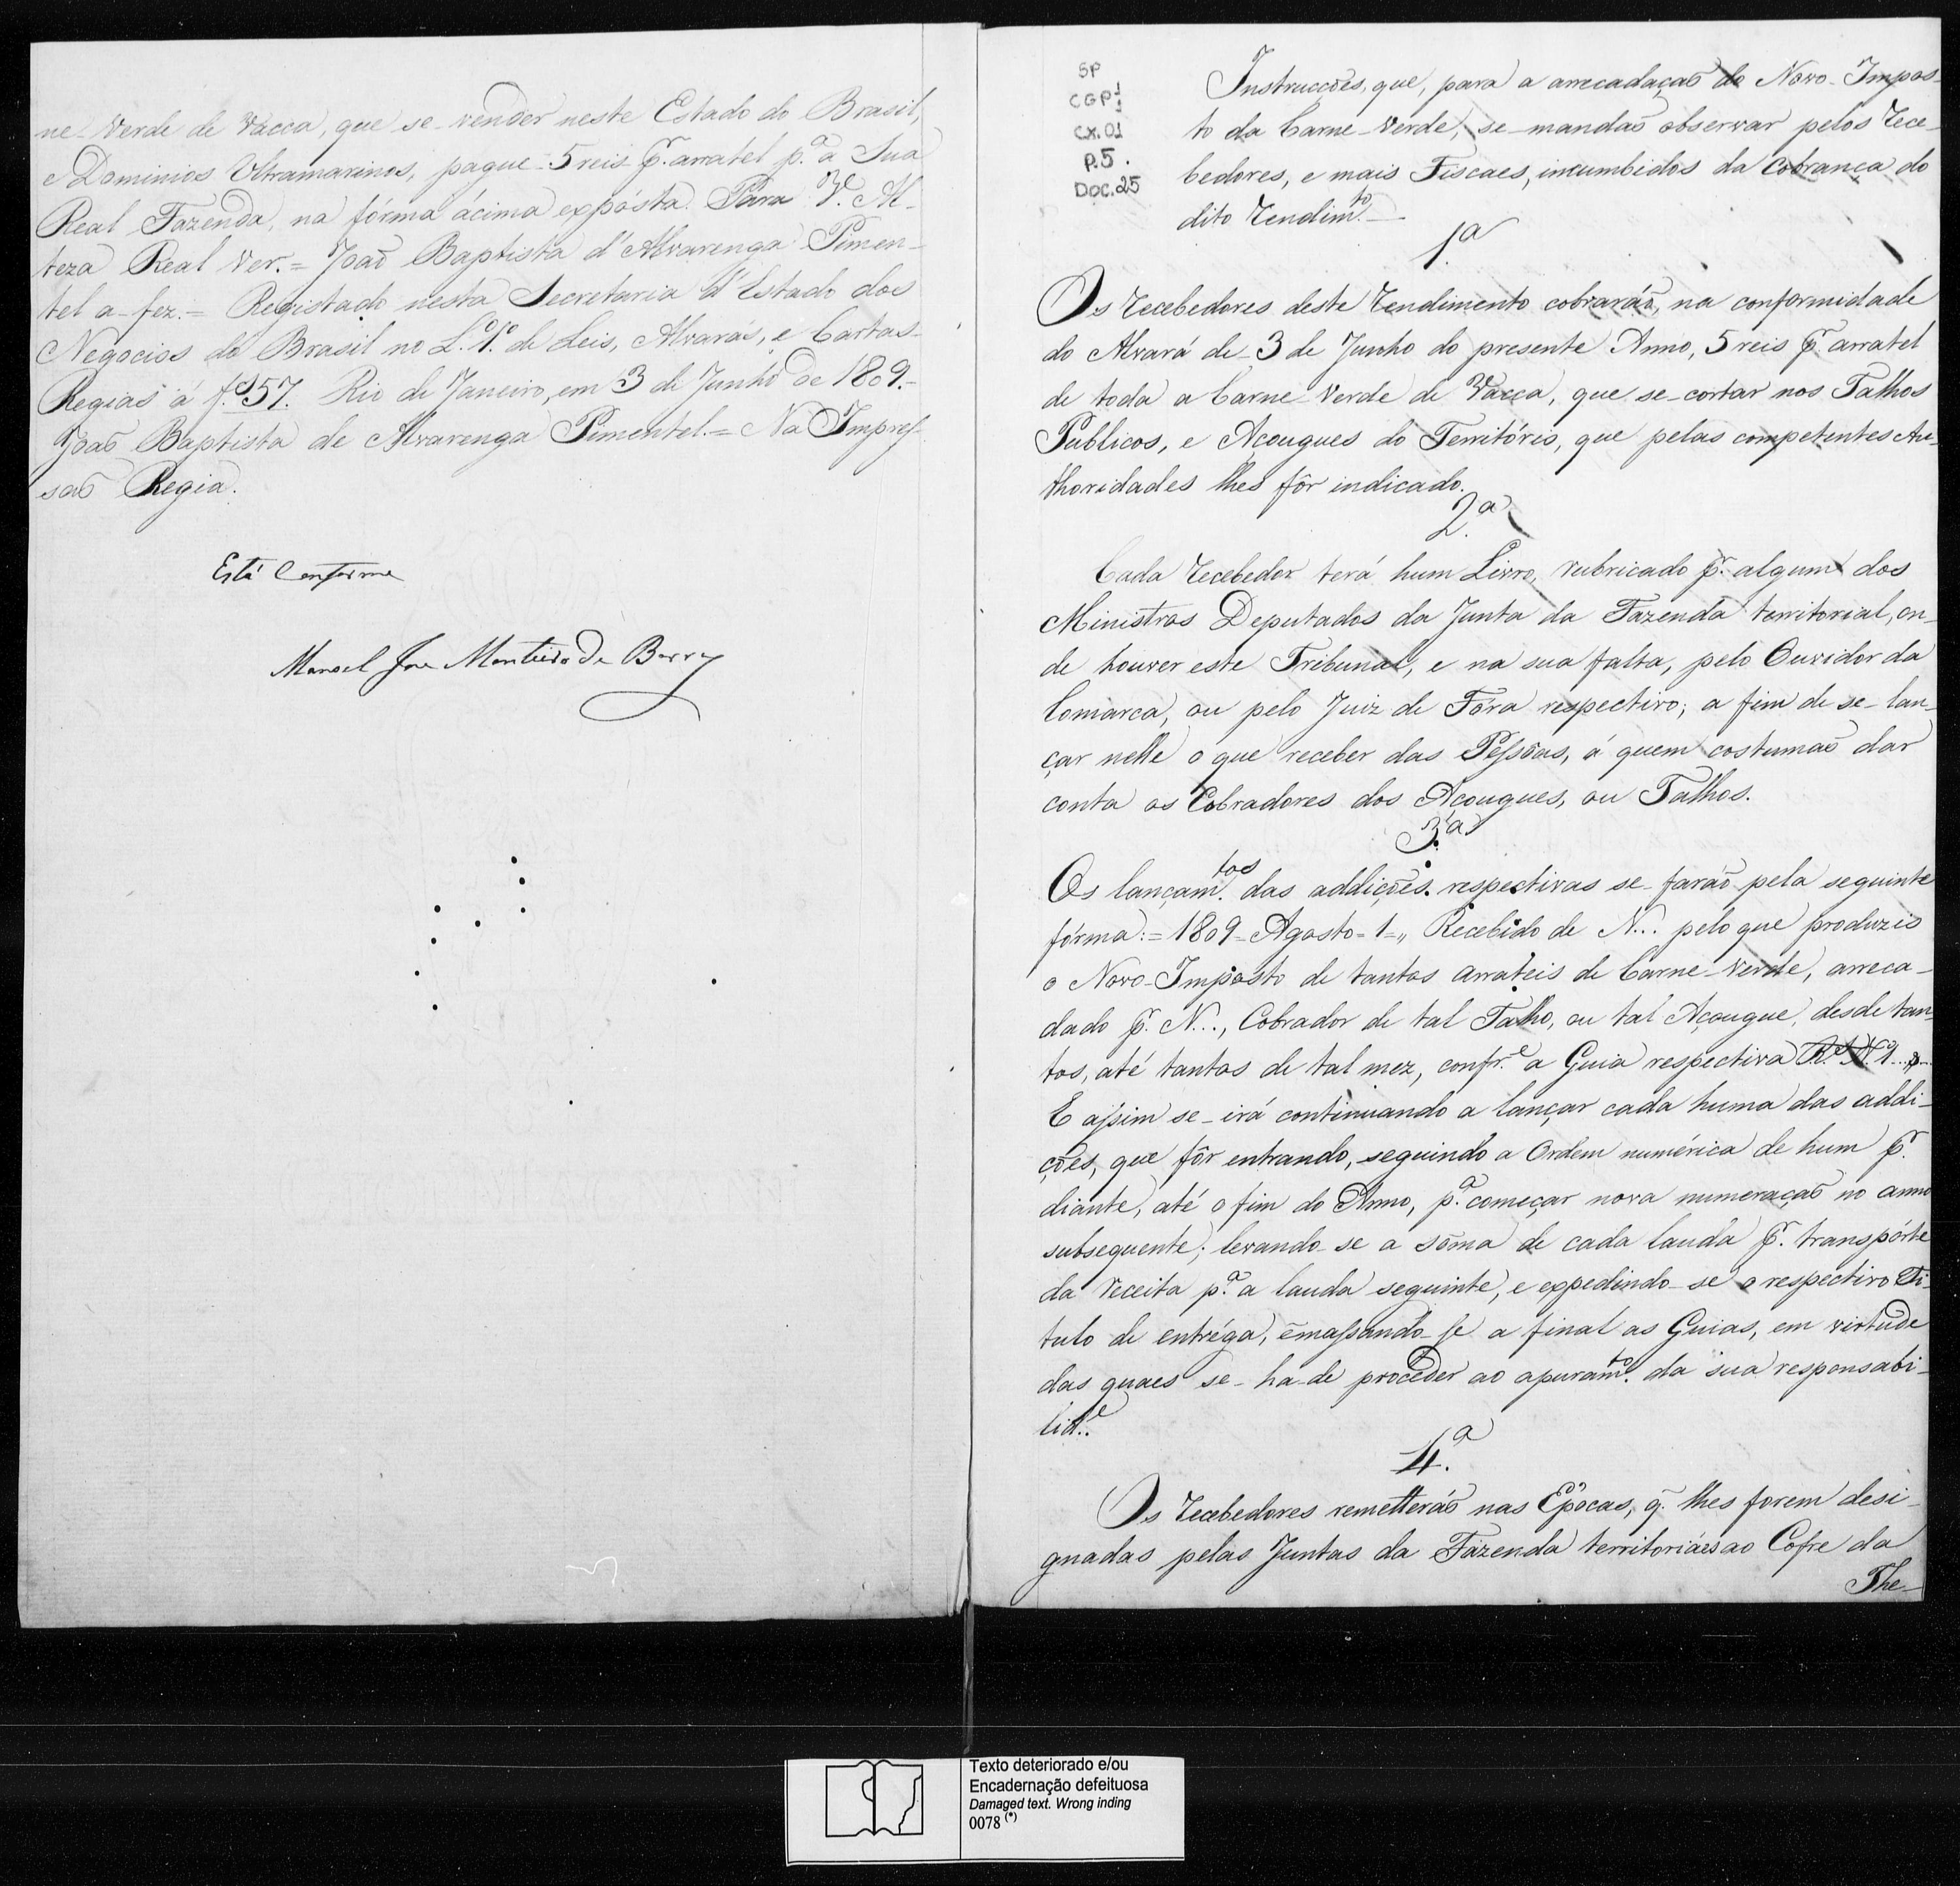 ne-Verde de Vacca, que se-vender neste Estado do Brasil,
e Dominios Ultramarinos, pague 5 reis pr. arratel p.ª a Sua
Real Fazenda, na fórma ácima expósta. Para V. Al-
teza Real Ver. = Joaõ Baptista d'Alvarenga Pimen-
tel a-fez. = Registado nesta Secretaria d'Estado dos
Negocios do Brasil no L.º 1.º de Leis, Alvarás, e Cartas-
Regias á f.s 57. Rio de Janeiro, em 3 de Junho de 1809.-
Joaõ Baptista de Alvarenga Pimentel. = Na Impres-
saõ Regia.
Está Conforme
Manoel Jose Monteiro de Barros
SP
CGP1
1
Cx.01
P.5.
Doc.25
Instrucções, que, para a arrecadaçaõ do Novo-Impos-
to da Carne-Verde, se-mandaõ observar pelos Rece-
bedores, e mais Fiscaes, incumbidos da Cobrança do
dito Rendim.to
1.ª
Os Recebedores deste Rendimento cobraráõ, na conformidade
do Alvará de 3 de Junho do presente Anno, 5 reis pr. arratel
de toda a Carne Verde de Vacca, que se-cortar nos Talhos
Publicos, e Açougues do Território, que pelas competentes Au-
thoridades lhes fôr indicado.
2.ª
Cada Recebedor terá hum Livro, rubricado pr. algum dos
Ministros Deputados da Junta da Fazenda territorial, on-
de houver este Tribunal, e na sua falta, pelo Ouvidor da
Comarca, ou pelo Juiz de Fóra respectivo; a fim de se-lan-
çar nelle o que receber das Pessôas, á quem costumaõ dar
conta os Cobradores dos Açougues, ou Talhos.
3.ª
Os lançam.tos das addições respectivas se-faráõ pela seguinte
fórma: = 1809 - Agosto = 1 = „ Recebido de N... pelo que produzio
o Novo-Imposto de tantos arrateis de Carne-Verde, arreca-
dado pr. N..., Cobrador de tal Talho, ou tal Açougue, desde tan-
tos, até tantos de tal mez, confr.e a Guia respectiva
E assim se-irá continuando a lançar cada huma das addi-
ções, que fôr entrando, seguindo a Ordem numérica de hum pr.
diante, até o fim do Anno, p.ª começar nova numeraçaõ no anno
subsequente; levando-se a sôma de cada lauda pr. transpórte
da Receita p.ª a lauda seguinte, e expedindo-se o respectivo Ti-
tulo de entréga, ēmassando-se a final as Guias, em virtude
das quaes se-ha-de proceder ao apuram.to da sua responsabi-
lid.e
4.ª
Os Recebedores remetteráõ nas Epocas, q̃. lhes forem desi-
gnadas pelas Juntas da Fazenda territoriáes ao Cofre da
The-
Texto deteriorado e/ou
Encadernação defeituosa
Damaged text. Wrong inding
0078 (*)